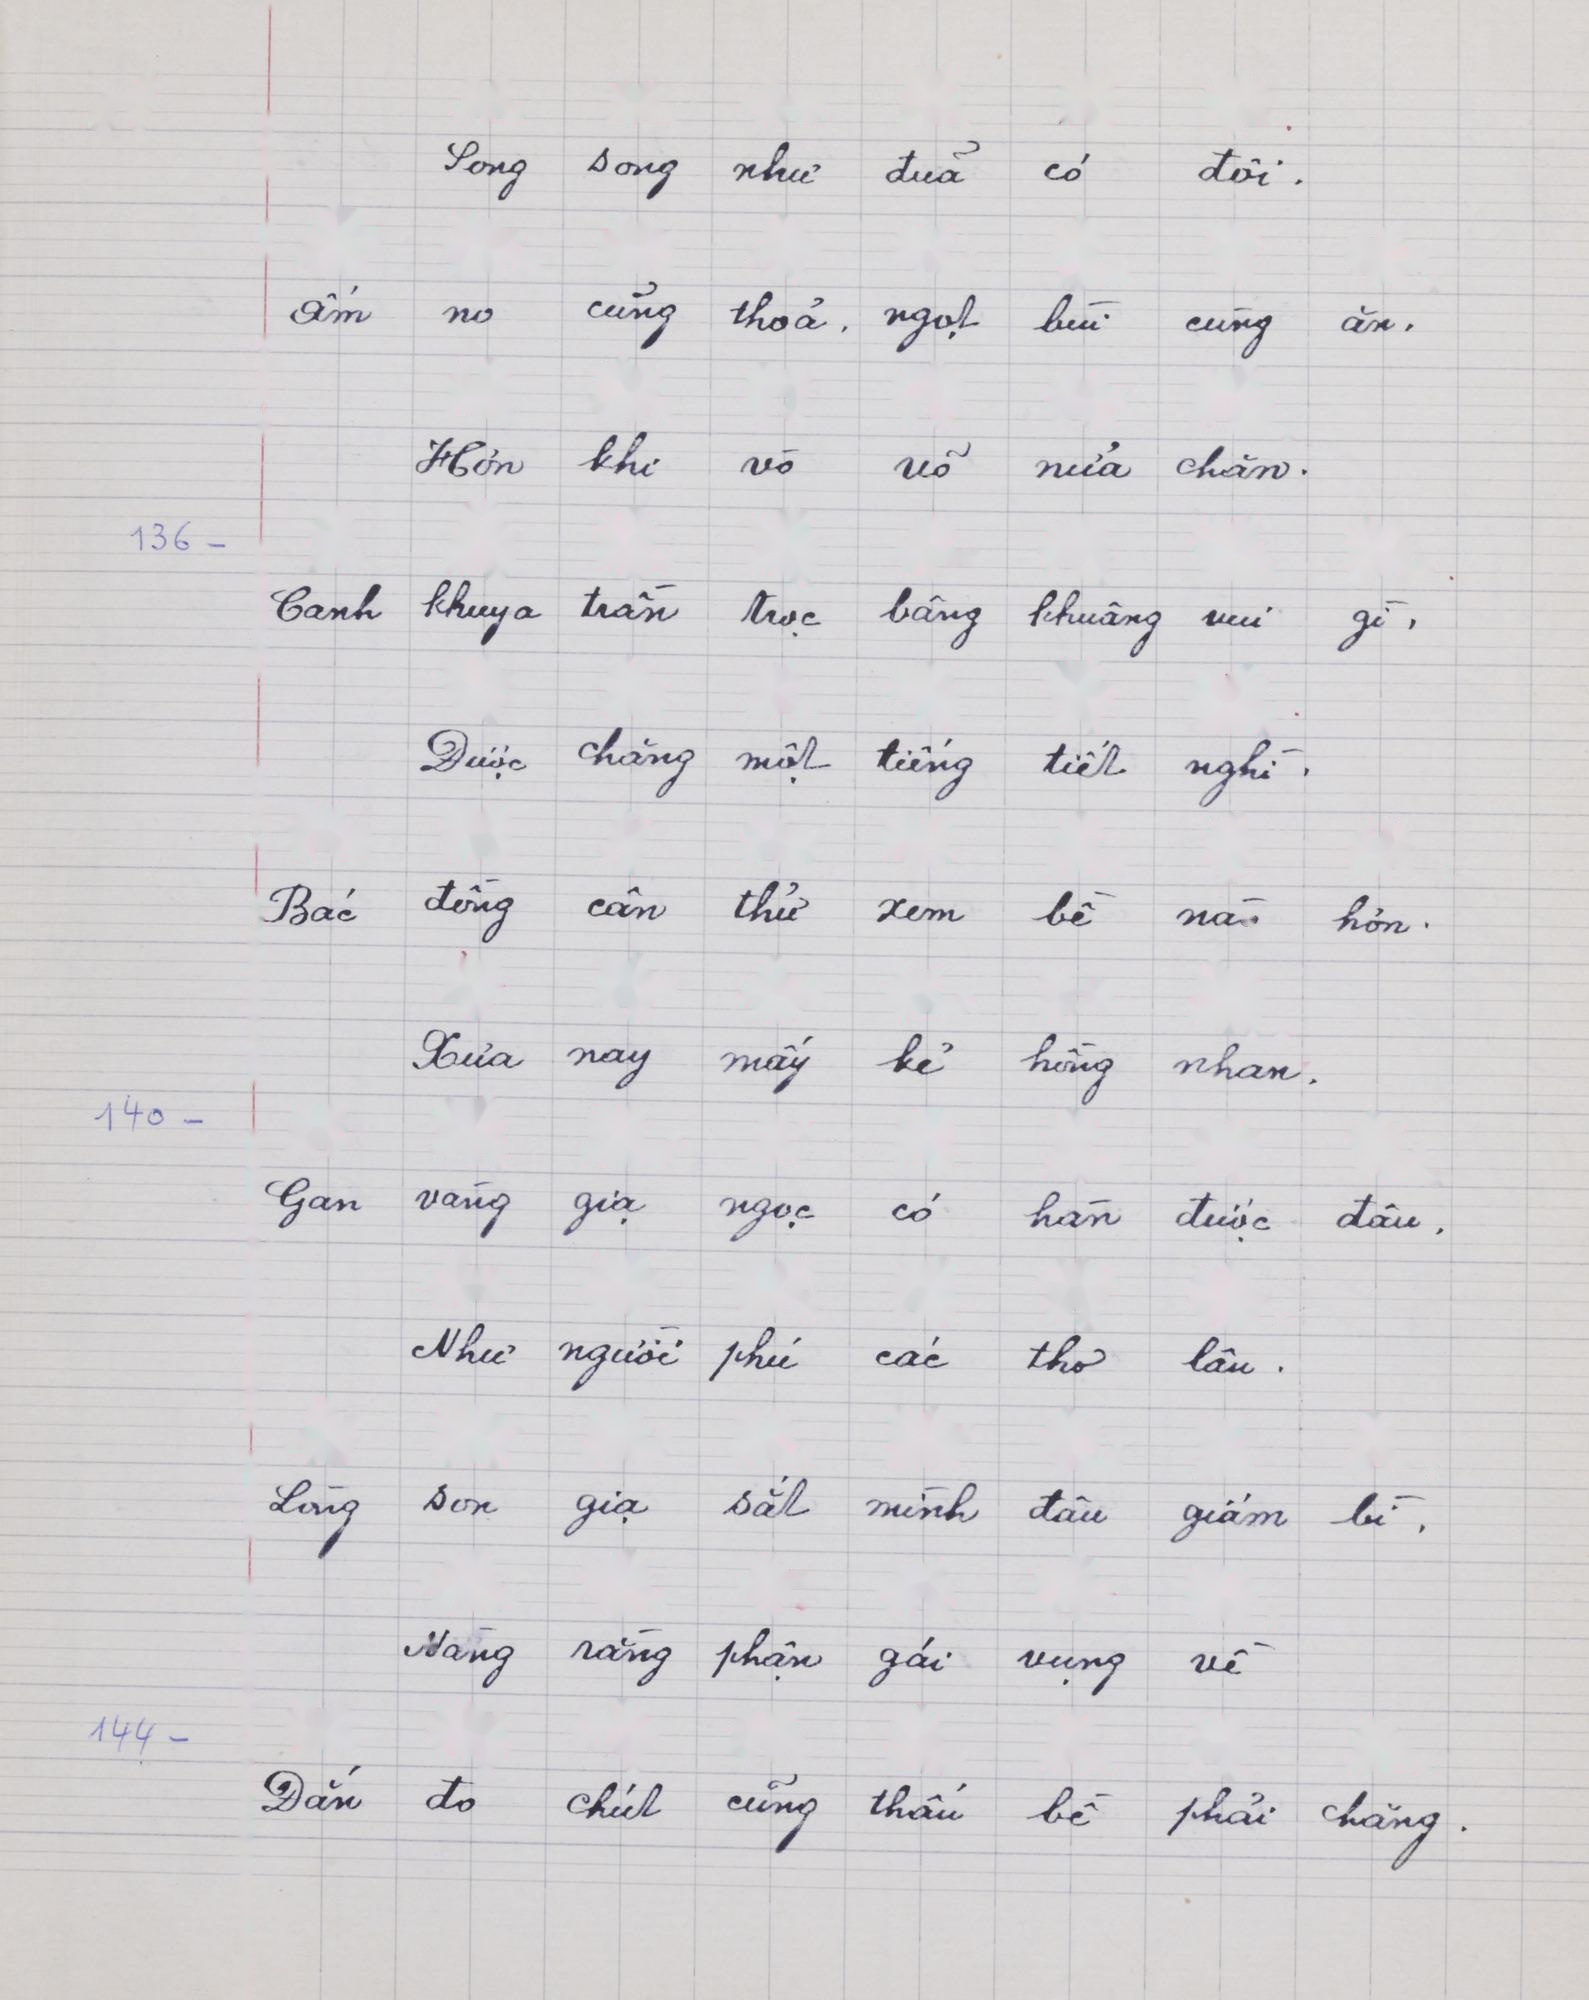 Song song như đuã có đôi.
Ấm no cũng thoả, ngọt bùi cùng ăn.
Hơn khi vò võ nửa chăn.
136 -
Canh khuya trằn trọc bâng khuâng vui gì,
Được chăng một tiếng tiết nghì.
Bác đồng cân thử xem bề nào hơn.
Xưa nay mấy kẻ hồng nhan.
140 -
Gan vàng giạ ngọc có hàn được đâu.
Như người phú các thơ lâu.
Lòng son giạ sắt mình đâu giám bì,
Nàng rằng phận gái vụng về
144 -
Dắn đo chút cũng thấu bề phải chăng.